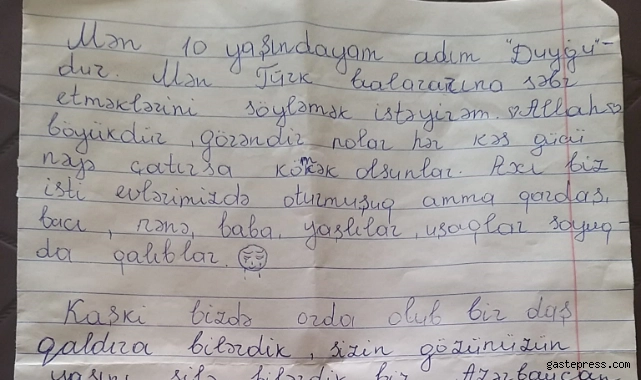 Mən 10 yaşındayam adım "Duyğu"-
dur. Mən Türk balalarına səbr
etməklərini söyləmək istəyirəm. ♡Allah♡
böyükdür, görəndir nolar hər kəs gücü
nəyə çatırsa kömək olsunlar. Axı biz
isti evlərimizdə oturmuşuq amma qardaş,
bacı, nənə, baba, yaşlılar, uşaqlar soyuq-
da qalıblar.
Kaşki bizdə orda olub bir daş
qaldıra bilərdik, sizin gözünüzün
yaşını silə bilərdik biz Azərbaycan
gastepress.com